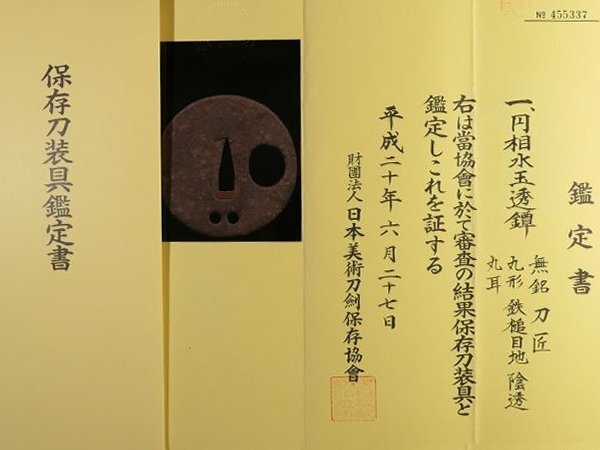 № 455337
鑑定書
一、円相水玉透鐔
無銘 刀匠
丸形 鉄槌目地 陰透
丸耳
右は當協會に於て審査の結果保存刀装具と
鑑定しこれを証する
平成二十年六月二十七日
財團法人 日本美術刀剣保存協會
保存刀装具鑑定書